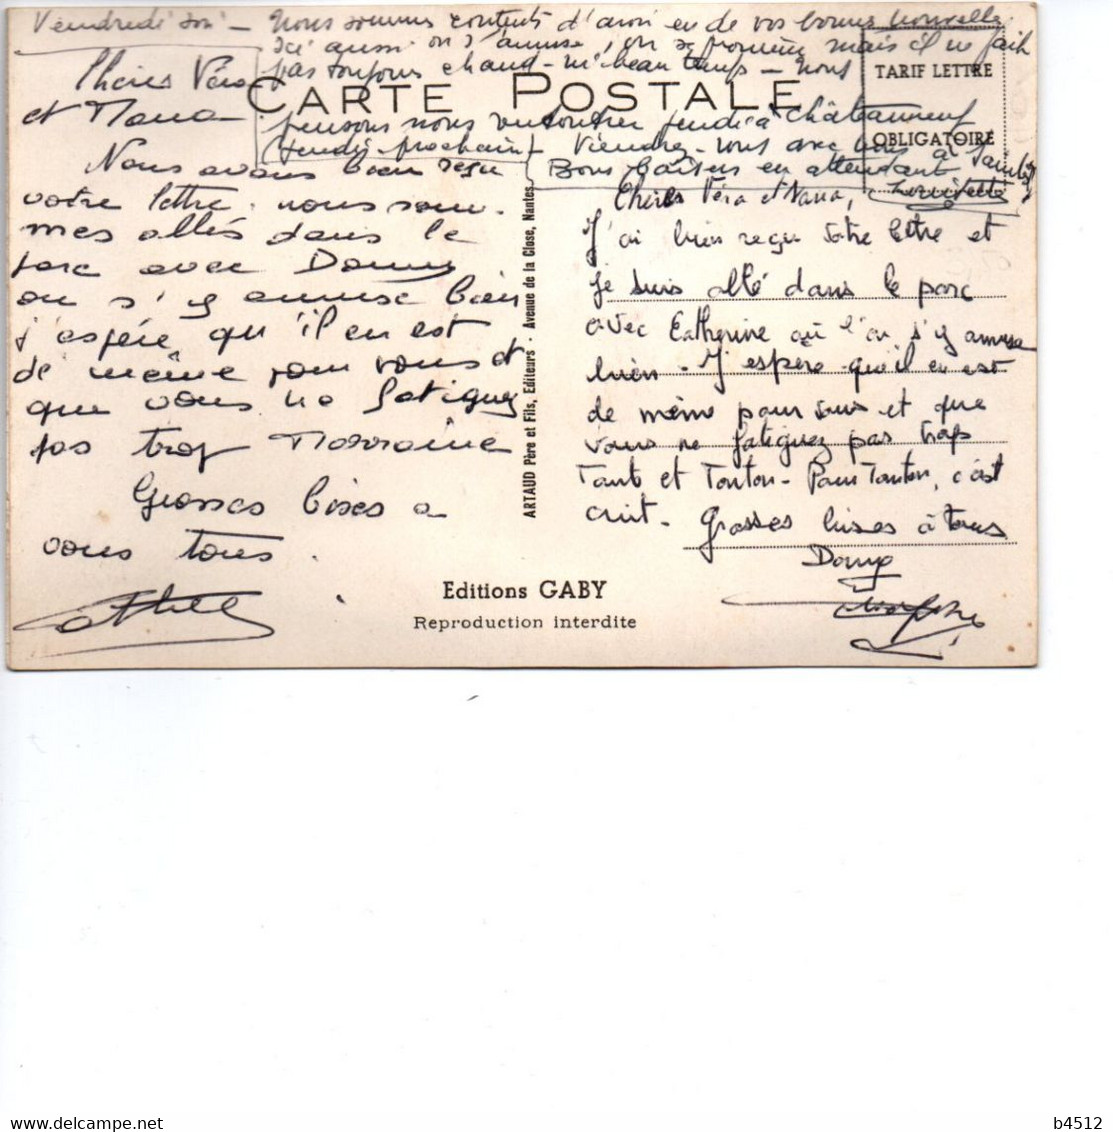 Vendredi soir - Nous sommes contents d'avoir eu de vos bonnes nouvelles
Ici aussi on s'amuse, on se promène mais il ne fait
pas toujours chaud - ni beau temps - Nous
pensons nous rencontrer jeudi à Châteauneuf
(Jeudi prochain) Viendrez-vous avec nous à
Bons baisers en attendant
CARTE POSTALE
TARIF LETTRE
OBLIGATOIRE
Chères Véra
et Nana -
Nous avons bien reçu
votre lettre. nous som-
mes allés dans le
parc avec Domy
on s'y amuse bien
j'espère qu'il en est
de même pour vous et
que vous ne fatiguez
pas trop Marraine
Grosses bises a
vous tous.
Cathe
ARTAUD Père et Fils, Editeurs - Avenue de la Close, Nantes.
Chères Véra et Nana,
J'ai bien reçu votre lettre et
je suis allé dans le parc
avec Catherine où l'on s'y amuse
bien - J'espère qu'il en est
de même pour vous et que
vous ne fatiguez pas trop
Tante et Tonton - Pour Tonton, c'est
cuit - Grosses bises à tous
Domy
Editions GABY
Reproduction interdite
b4512